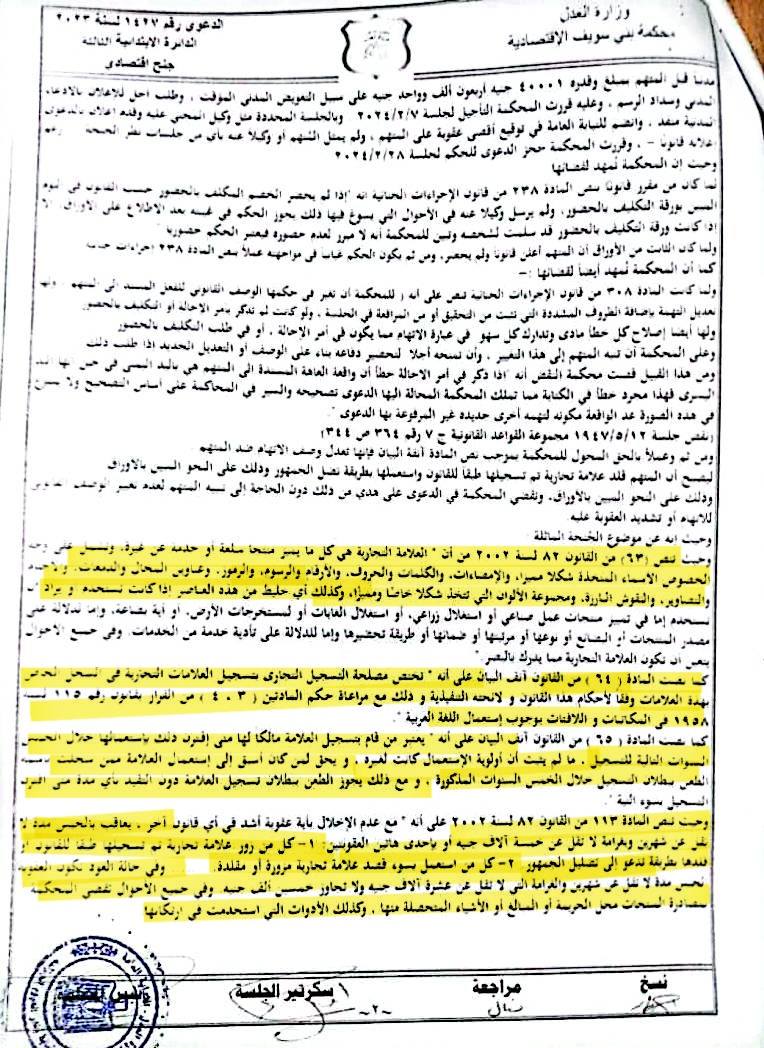 وزارة العدل
محكمة بني سويف الإقتصادية
الدعوى رقم ١٤٢٧ لسنة ٢٠٢٣
الدائرة الابتدائية الثالثة
جنح اقتصادى
مدنياً قبل المتهم بمبلغ وقدره ٤٠٠٠١ جنيه أربعون ألف وواحد جنيه على سبيل التعويض المدنى المؤقت ، وطلب اجل للإعلان بالادعاء
المدنى وسداد الرسم ، وعليه قررت المحكمة التأجيل لجلسة ٢٠٢٤/٢/٧ وبالجلسة المحددة مثل وكيل المجنى عليه وقدم اعلان بالدعوى
المدنية منفذ ، وانضم للنيابة العامة في توقيع أقصى عقوبة على المتهم ، ولم يمثل المتهم أو وكيلاً عنه بأي من جلسات نظر الجنحة رغم
إعلانه قانوناً – ، وقررت المحكمة حجز الدعوى للحكم لجلسة ٢٠٢٤/٢/٢٨
وحيث إن المحكمة تُمهد لقضائها
لما كان من مقرر قانوناً بنص المادة ٢٣٨ من قانون الإجراءات الجنائية انه "إذا لم يحضر الخصم المكلف بالحضور حسب القانون في اليوم
المبين بورقة التكليف بالحضور، ولم يرسل وكيلاً عنه في الأحوال التي يسوغ فيها ذلك يجوز الحكم في غيبته بعد الاطلاع على الأوراق، إلا
إذا كانت ورقة التكليف بالحضور قد سلمت لشخصه وتبين للمحكمة أنه لا مبرر لعدم حضوره فيعتبر الحكم حضوريا "
ولما كان الثابت من الأوراق أن المتهم أعلن قانوناً ولم يحضر، ومن ثم يكون الحكم غيابياً في مواجهته عملاً بنص المادة ٢٣٨ إجراءات جنائية
كما أن المحكمة تُمهد أيضاً لقضائها :–
ولما كانت المادة ٣٠٨ من قانون الإجراءات الجنائية تنص على أنه ( للمحكمة أن تغير في حكمها الوصف القانوني للفعل المسند الى المتهم ، ولها
تعديل التهمة بإضافة الظروف المشددة التي تثبت من التحقيق أو من المرافعة في الجلسة ، ولو كانت لم تذكر بأمر الاحالة أو التكليف بالحضور
ولها أيضا إصلاح كل خطأ مادى وتدارك كل سهو في عبارة الاتهام مما يكون في أمر الإحالة ، أو في طلب التكليف بالحضور
وعلى المحكمة أن تنبه المتهم إلى هذا التغيير ، وأن تمنحه أجلا لتحضير دفاعه بناء على الوصف أو التعديل الجديد اذا طلب ذلك
ومن هذا القبيل قضت محكمة النقض أنه "اذا ذكر في أمر الاحالة خطأ أن واقعة العاهة المسندة الى المتهم هي باليد اليمنى في حين انها اليد
اليسرى فهذا مجرد خطأ في الكتابة مما تملك المحكمة المحالة اليها الدعوى تصحيحه والسير في المحاكمة على أساس التصحيح ولا يسوغ
في هذه الصورة عد الواقعة مكونه لتهمه أخرى جديده غير المرفوعة بها الدعوى ".
(نقض جلسة ١٩٤٧/٥/١٢ مجموعة القواعد القانونية ج ٧ رقم ٣٦٤ ص ٣٤٤)
ومن ثم وعملاً بالحق المخول للمحكمة بموجب نص المادة آنفة البيان فإنها تعدل وصف الاتهام ضد المتهم
ليصبح أن المتهم قلد علامة تجارية تم تسجيلها طبقاً للقانون واستعملها بطريقة تضل الجمهور وذلك على النحو المبين بالاوراق
وذلك على النحو المبين بالأوراق، وتقضي المحكمة في الدعوى على هدي من ذلك دون الحاجة إلى تنبيه المتهم لعدم تغيير الوصف القانوني
للاتهام أو تشديد العقوبة عليه
وحيث انه عن موضوع الجُنحة الماثلة :
وحيث تنص (٦٣) من القانون ٨٢ لسنة ٢٠٠٢ من أن " العلامة التجارية هي كل ما يميز منتجاً سلعة أو خدمة عن غيره، وتشمل على وجه
الخصوص الأسماء المتخذة شكلا مميزا، والإمضاءات، والكلمات والحروف، والأرقام والرسوم، والرموز، وعناوين المحال والدمغات، والأختام
والتصاوير، والنقوش البارزة، ومجموعة الألوان التي تتخذ شكلا خاصا ومميزا، وكذلك أي خليط من هذه العناصر إذا كانت تستخدم أو يراد أن
تستخدم إما في تمييز منتجات عمل صناعي أو استغلال زراعي، أو استغلال الغابات أو لمستخرجات الأرض، أو أية بضاعة، وإما للدلالة على
مصدر المنتجات أو البضائع أو نوعها أو مرتبتها أو ضمانها أو طريقة تحضيرها وإما للدلالة على تأدية خدمة من الخدمات. وفي جميع الأحوال
يتعين أن تكون العلامة التجارية مما يدرك بالبصر".
كما نصت المادة (٦٤) من القانون آنف البيان على أنه " تختص مصلحة التسجيل التجارى بتسجيل العلامات التجارية في السجل الخاص
بهذه العلامات وفقاً لأحكام هذا القانون و لائحته التنفيذية و ذلك مع مراعاة حكم المادتين ( ٣ ، ٤ ) من القرار بقانون رقم ١١٥ لسنة
١٩٥٨ فى المكاتبات و اللافتات بوجوب إستعمال اللغة العربية ".
كما نصت المادة (٦٥) من القانون آنف البيان على أنه " يعتبر من قام بتسجيل العلامة مالكاً لها متى إقترن ذلك بإستعمالها خلال الخمس
السنوات التالية للتسجيل ، ما لم يثبت أن أولوية الإستعمال كانت لغيره ، و يحق لمن كان أسبق إلى إستعمال العلامة ممن سجلت باسمه
الطعن ببطلان التسجيل خلال الخمس السنوات المذكورة ، و مع ذلك يجوز الطعن ببطلان تسجيل العلامة دون التقيد بأي مدة متى اقترن
التسجيل بسوء النية ".
وحيث تنص المادة ١١٣ من القانون ٨٢ لسنة ٢٠٠٢ على أنه " مع عدم الإخلال بأية عقوبة أشد في أي قانون آخر ، يعاقب بالحبس مدة لا
تقل عن شهرين وبغرامة لا تقل عن خمسة آلاف جنيه أو بإحدى هاتين العقوبتين: ١- كل من زور علامة تجارية تم تسجيلها طبقاً للقانون أو
قلدها بطريقة تدعو إلى تضليل الجمهور ٢- كل من استعمل بسوء قصد علامة تجارية مزورة أو مقلدة. ..... وفي حالة العود تكون العقوبة
الحبس مدة لا تقل عن شهرين والغرامة التي لا تقل عن عشرة آلاف جنيه ولا تجاوز خمسين ألف جنيه وفي جميع الأحوال تقضي المحكمة
بمصادرة المنتجات محل الجريمة أو المبالغ أو الأشياء المتحصلة منها ، وكذلك الأدوات التي استخدمت في ارتكابها
نسخ
مراجعة
سكرتير الجلسة
رئيس المحكمة
-٢-